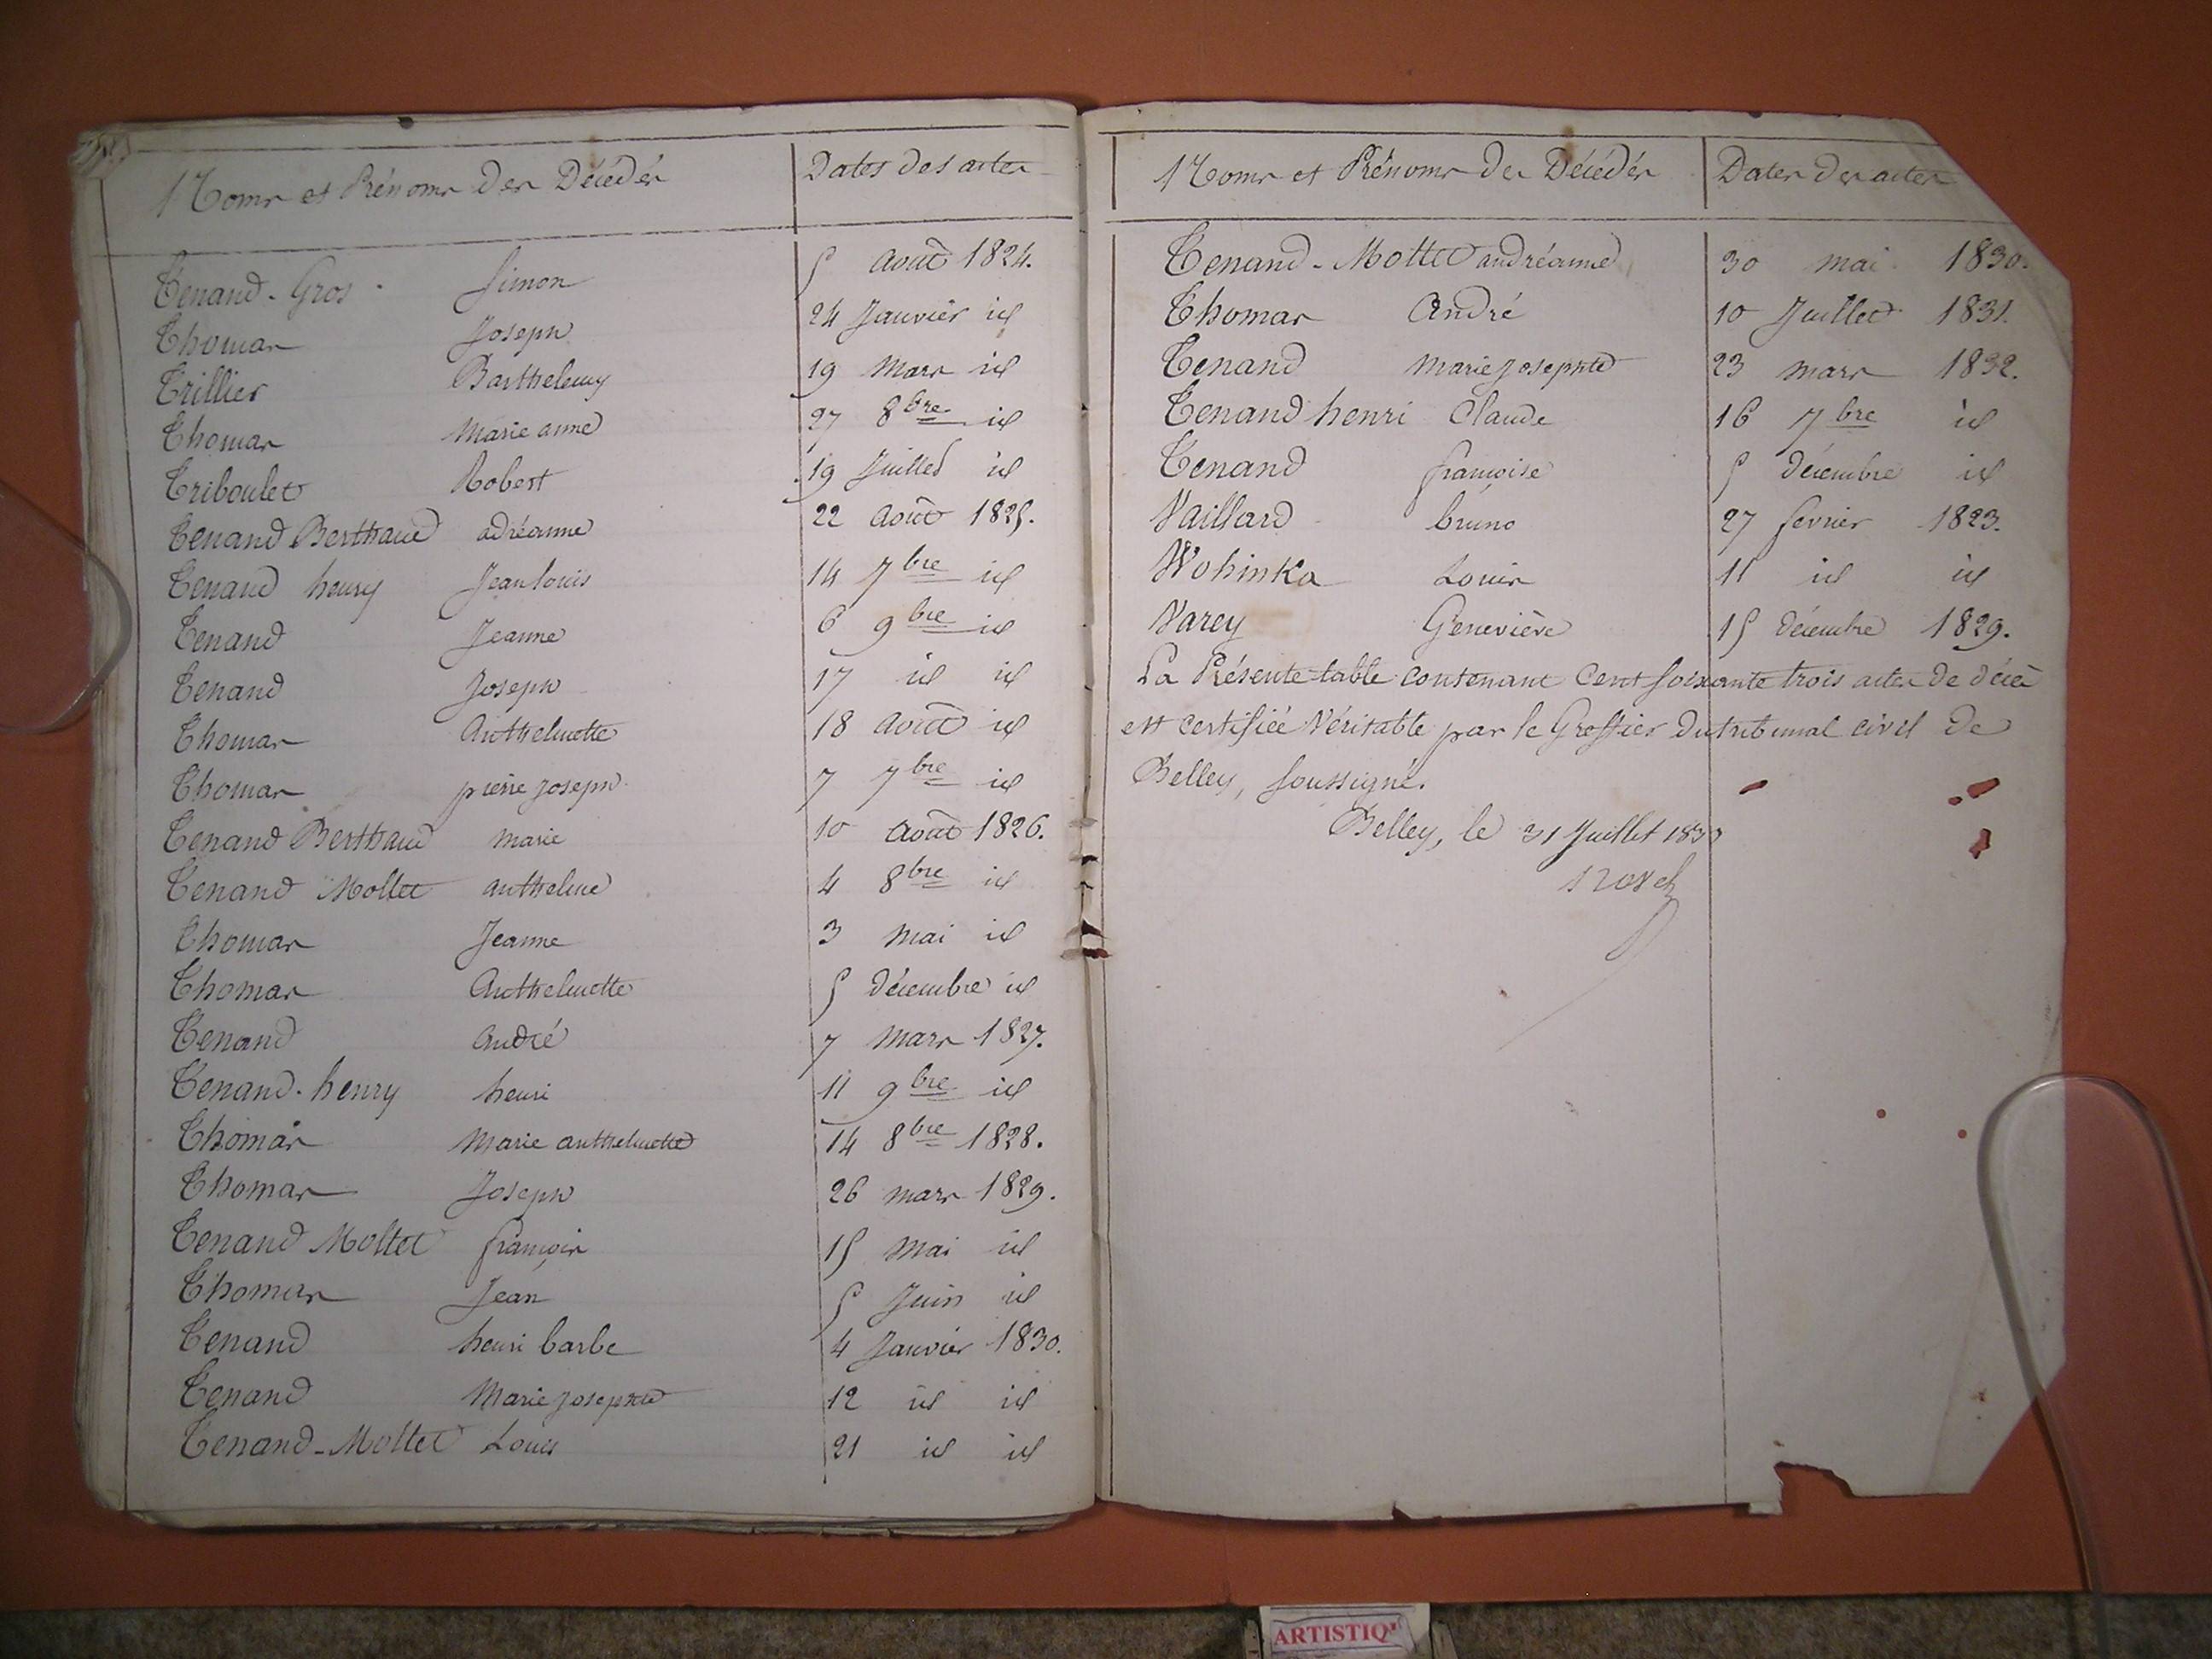 Noms et Prénoms des Décédés Dates des actes
Tenand-Gros Simon 5 août 1824.
Thomas Joseph 24 Janvier id
Trillier Barthelemy 19 Mars id
Thomas Marie anne 27 8bre id
Triboulet Robert 19 Juillet id
Tenand Berthaud adréanne 22 août 1825.
Tenand henry Jean louis 14 7bre id
Tenand Jeanne 6 9bre id
Tenand Joseph 17 id id
Thomas Anthelmette 18 août id
Thomas pierre joseph 7 7bre id
Tenand Berthaud marie 10 août 1826.
Tenand Mollet anthelme 4 8bre id
Thomas Jeanne 3 mai id
Thomas Anthelmette 5 décembre id
Tenand André 7 Mars 1827.
Tenand-henry henri 11 9bre id
Thomas Marie anthelmette 14 8bre 1828.
Thomas Joseph 26 mars 1829.
Tenand Mottet françois 15 Mai id
Thomas Jean 5 Juin id
Tenand henri barbe 4 Janvier 1830.
Tenand Marie josephte 12 id id
Tenand-Mottet Louis 21 id id
Noms et Prénoms des Décédés Dates des actes
Tenand-Mottet andréanne 30 mai 1830.
Thomas André 10 Juillet 1831.
Tenand Marie josephte 23 mars 1832.
Tenand henri Claude 16 7bre id
Tenand françoise 5 décembre id
Vaillard bruno 27 fevrier 1823.
Wohinka Louis 11 id id
Varey Geneviève 15 décembre 1829.
La Présente table contenant Cent soixante trois actes de décè
est certifiée Véritable par le Greffier du tribunal civil de
Belley, soussigné.
Belley, le 31 Juillet 1833
ARTISTIQ'